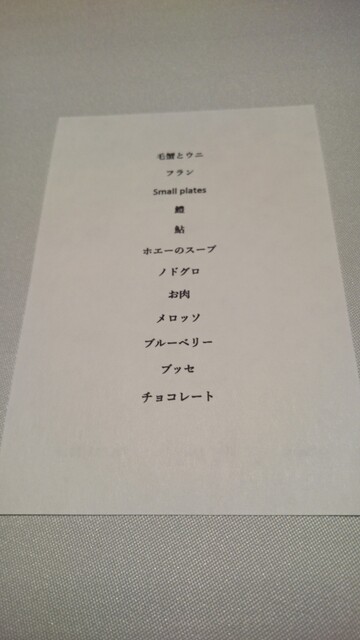 毛蟹とウニ
フラン
Small plates
鱧
鮎
ホエーのスープ
ノドグロ
お肉
メロッソ
ブルーベリー
ブッセ
チョコレート